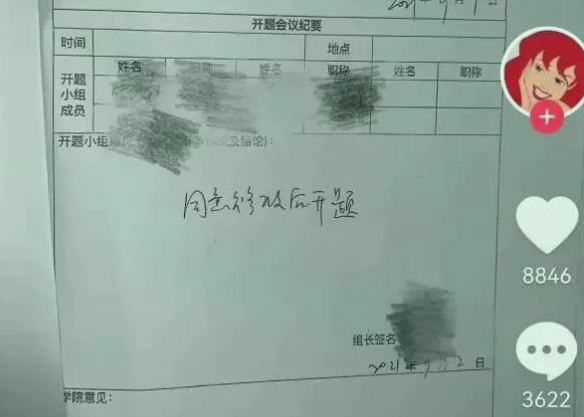 开题会议纪要
时间 地点
姓名 姓名 职称 姓名 职称
开题
小组
成员
开题小组 及结论):
同意修改后开题
组长签名
2021年9月2日
学院意见:
8846
3622